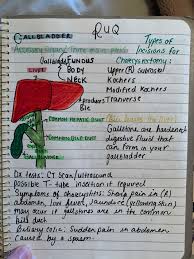 RUQ
GALLBLADDER
Types of
Incisions for
Gallbladder FUNDUS
Cholecystectomy:
BODY
Upper (R) Subcostal
LIVER
NECK
Modified Kochers
Kochers
Transverse
Produces
Bile
COMMON HEPATIC DUCT
Gallstone are hardened
COMMON BILE DUCT
digestive fluid that
can form in your
gallbladder
Dx Tests: CT Scan/ultrasound
possible T-tube insertion if required!
Symptoms of Cholecystitis: Sharp pain in (R)
abdomen, low fever, Jaundice (yellowing skin)
May occur if gallstones are in the common
bile duct
Biliary colic: Sudden pain in abdomen
caused by a spasm